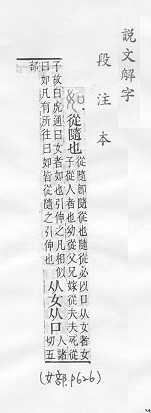 說文解字
段注本
從隨也
從隨卽隨從也隨從必以口从女者女
子從人者也幼從父兄嫁從夫夫死從
子故白虎通曰女者如也引伸之凡相似
曰如凡有所往曰如皆從隨之引伸也
从女从口
人諸
切五
部
(女部.p626)